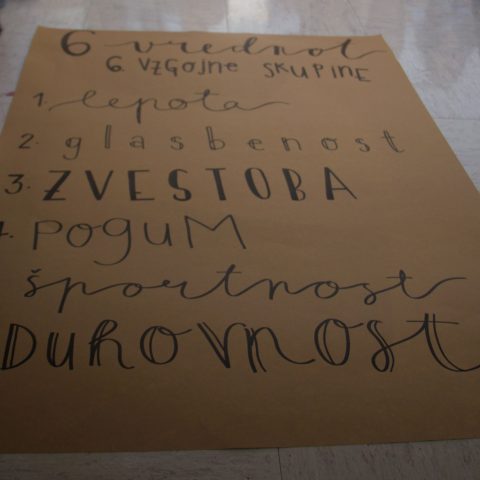 6 vrednot
6. VZGOJNE SKUPINE
1. lepota
2. glasbenost
3. ZVESTOBA
4. POGUM
športnost
DUHOVNOST